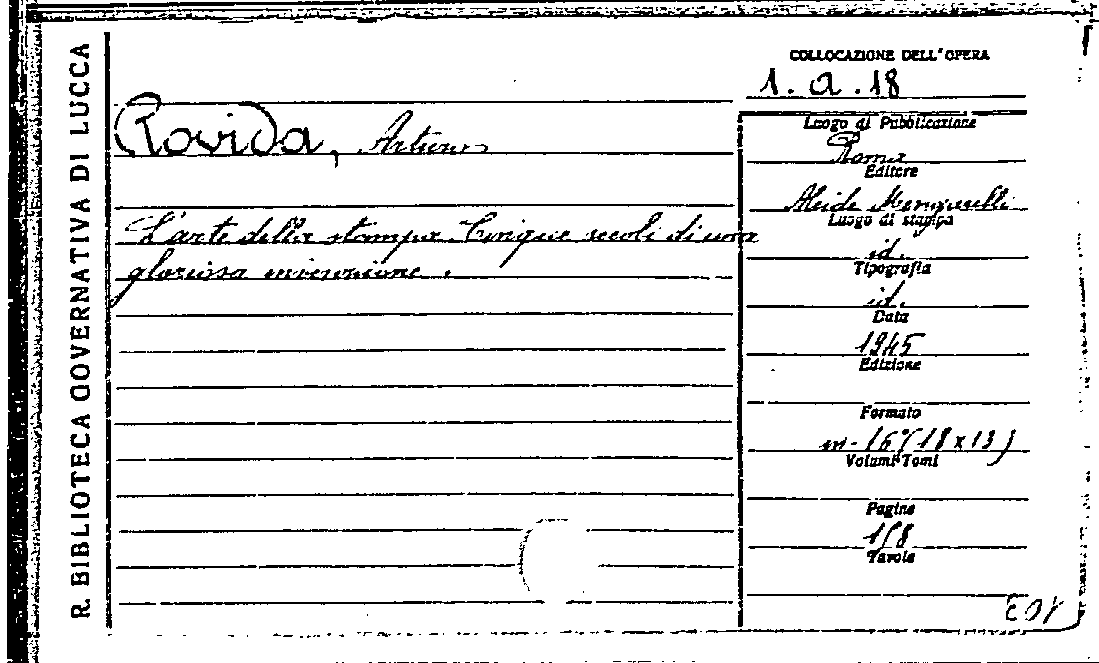 R. BIBLIOTECA GOVERNATIVA DI LUCCA
COLLOCAZIONE DELL'OPERA
1. a. 18
Rovida, Arturo
L'arte della stampa. Cinque secoli di una
gloriosa invenzione.
Luogo di Pubblicazione
Roma
Editore
Luogo di stampa
id.
Tipografia
id.
Data
1945
Edizione
Formato
in-16° (18 x 13)
Volumi Tomi
Pagine
158
Tavole